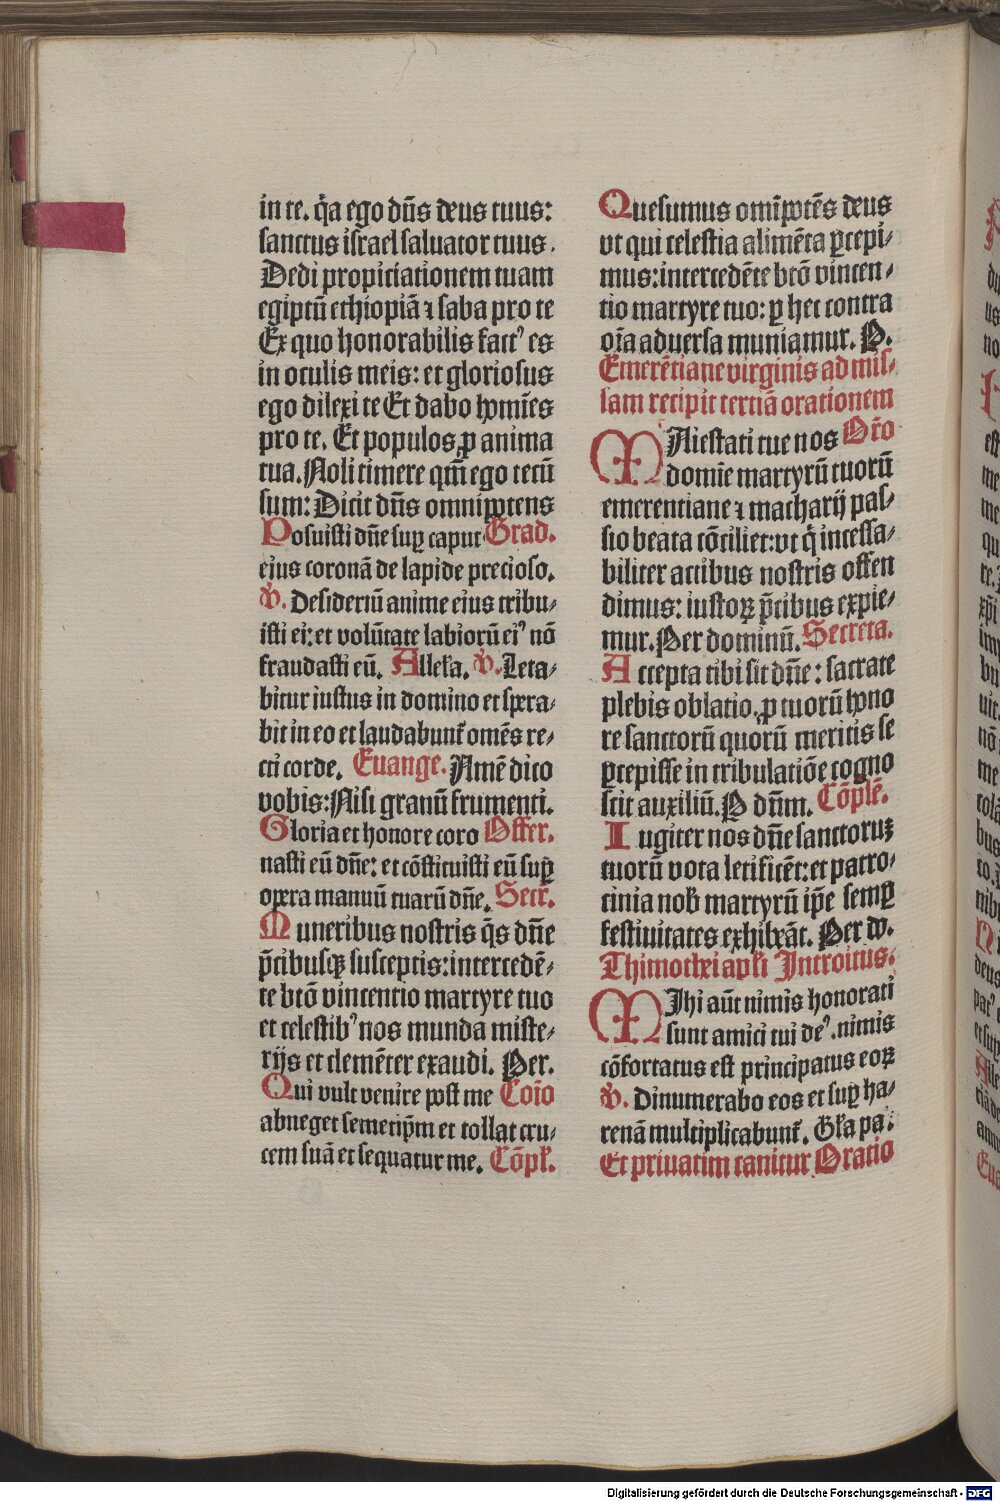 in te. q̇a ego dn̄s deus tuus:
sanctus israel saluator tuus.
Dedi propiciationem tuam
egiptū ethiopiā ⁊ saba pro te
Ex quo honorabilis factꝰ es
in oculis meis: et gloriosus
ego dilexi te Et dabo homīes
pro te. Et populos ꝓ anima
tua. Noli timere qm̄ ego tecū
sum: Dicit dn̄s omnipotens
Posuisti dn̄e suꝑ caput Grad.
eius coronā de lapide precioso.
v̇. Desideriū anime eius tribu-
isti ei: et volūtate labiorū eiꝰ nō
fraudasti eū. Alleła. v̇. Leta-
bitur iustus in domino et spera-
bit in eo et laudabunt̄ omēs re-
cti corde. Euange. Amē dico
vobis: Nisi granū frumenti.
Gloria et honore coro Offer.
nasti eū dn̄e: et cōstituisti eū suꝑ
opera manuū tuarū dn̄e. Secr̄.
Muneribus nostris q̄s dn̄e
p̄cibusqꝫ susceptis: intercedē-
te btō vincentio martyre tuo
et celestibꝰ nos munda miste-
rijs et clemēter exaudi. Per.
Qui vult venire post me Coīo
abneget semetip̄m et tollat cru-
cem suā et sequatur me. Cōpł.
Quesumus omīpotēs deus
vt qui celestia alimēta ꝑcepi-
mus: intercedēte btō vincen-
tio martyre tuo: ꝑ hec contra
oīa aduersa muniamur. P.
Emerētiane virginis ad mis-
sam recipit terciā orationem
MAiestati tue nos Or̄o
domīe martyrū tuorū
emerentiane ⁊ macharij pas-
sio beata cōciliet: vt q̇ incessa-
biliter actibus nostris offen
dimus: iustoꝝ p̄cibus expie-
mur. Per dominū. Secreta.
Accepta tibi sit dn̄e: sacrate
plebis oblatio. ꝓ tuorū hono
re sanctorū quorū meritis se
ꝑcepisse in tribulatiōe cogno
scit auxiliū. P dn̄m. Cōplē.
Iugiter nos dn̄e sanctoruꝫ
tuorū vota letificēt: et patro-
cinia nob̄ martyrū ip̄e semꝑ
festiuitates exhibeāt. Per do.
Thimothei apłi Introitus.
MIhi aūt nimis honorati
sunt amici tui deꝰ. nimis
cōfortatus est principatus eoꝝ
v̇. Dinumerabo eos et suꝑ ha-
renā multiplicabunt̄. Głia pa.
Et priuatim canitur Oratio
Digitalisierung gefördert durch die Deutsche Forschungsgemeinschaft - DFG